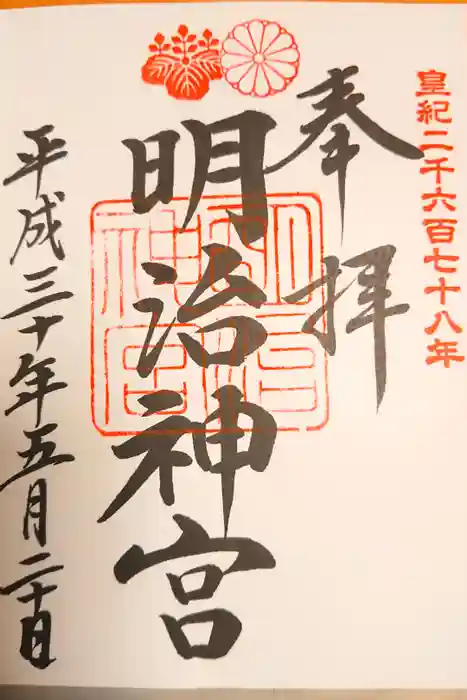 皇紀二千六百七十八年
奉拝
明治神宮
明治神宮
平成三十年五月二十日